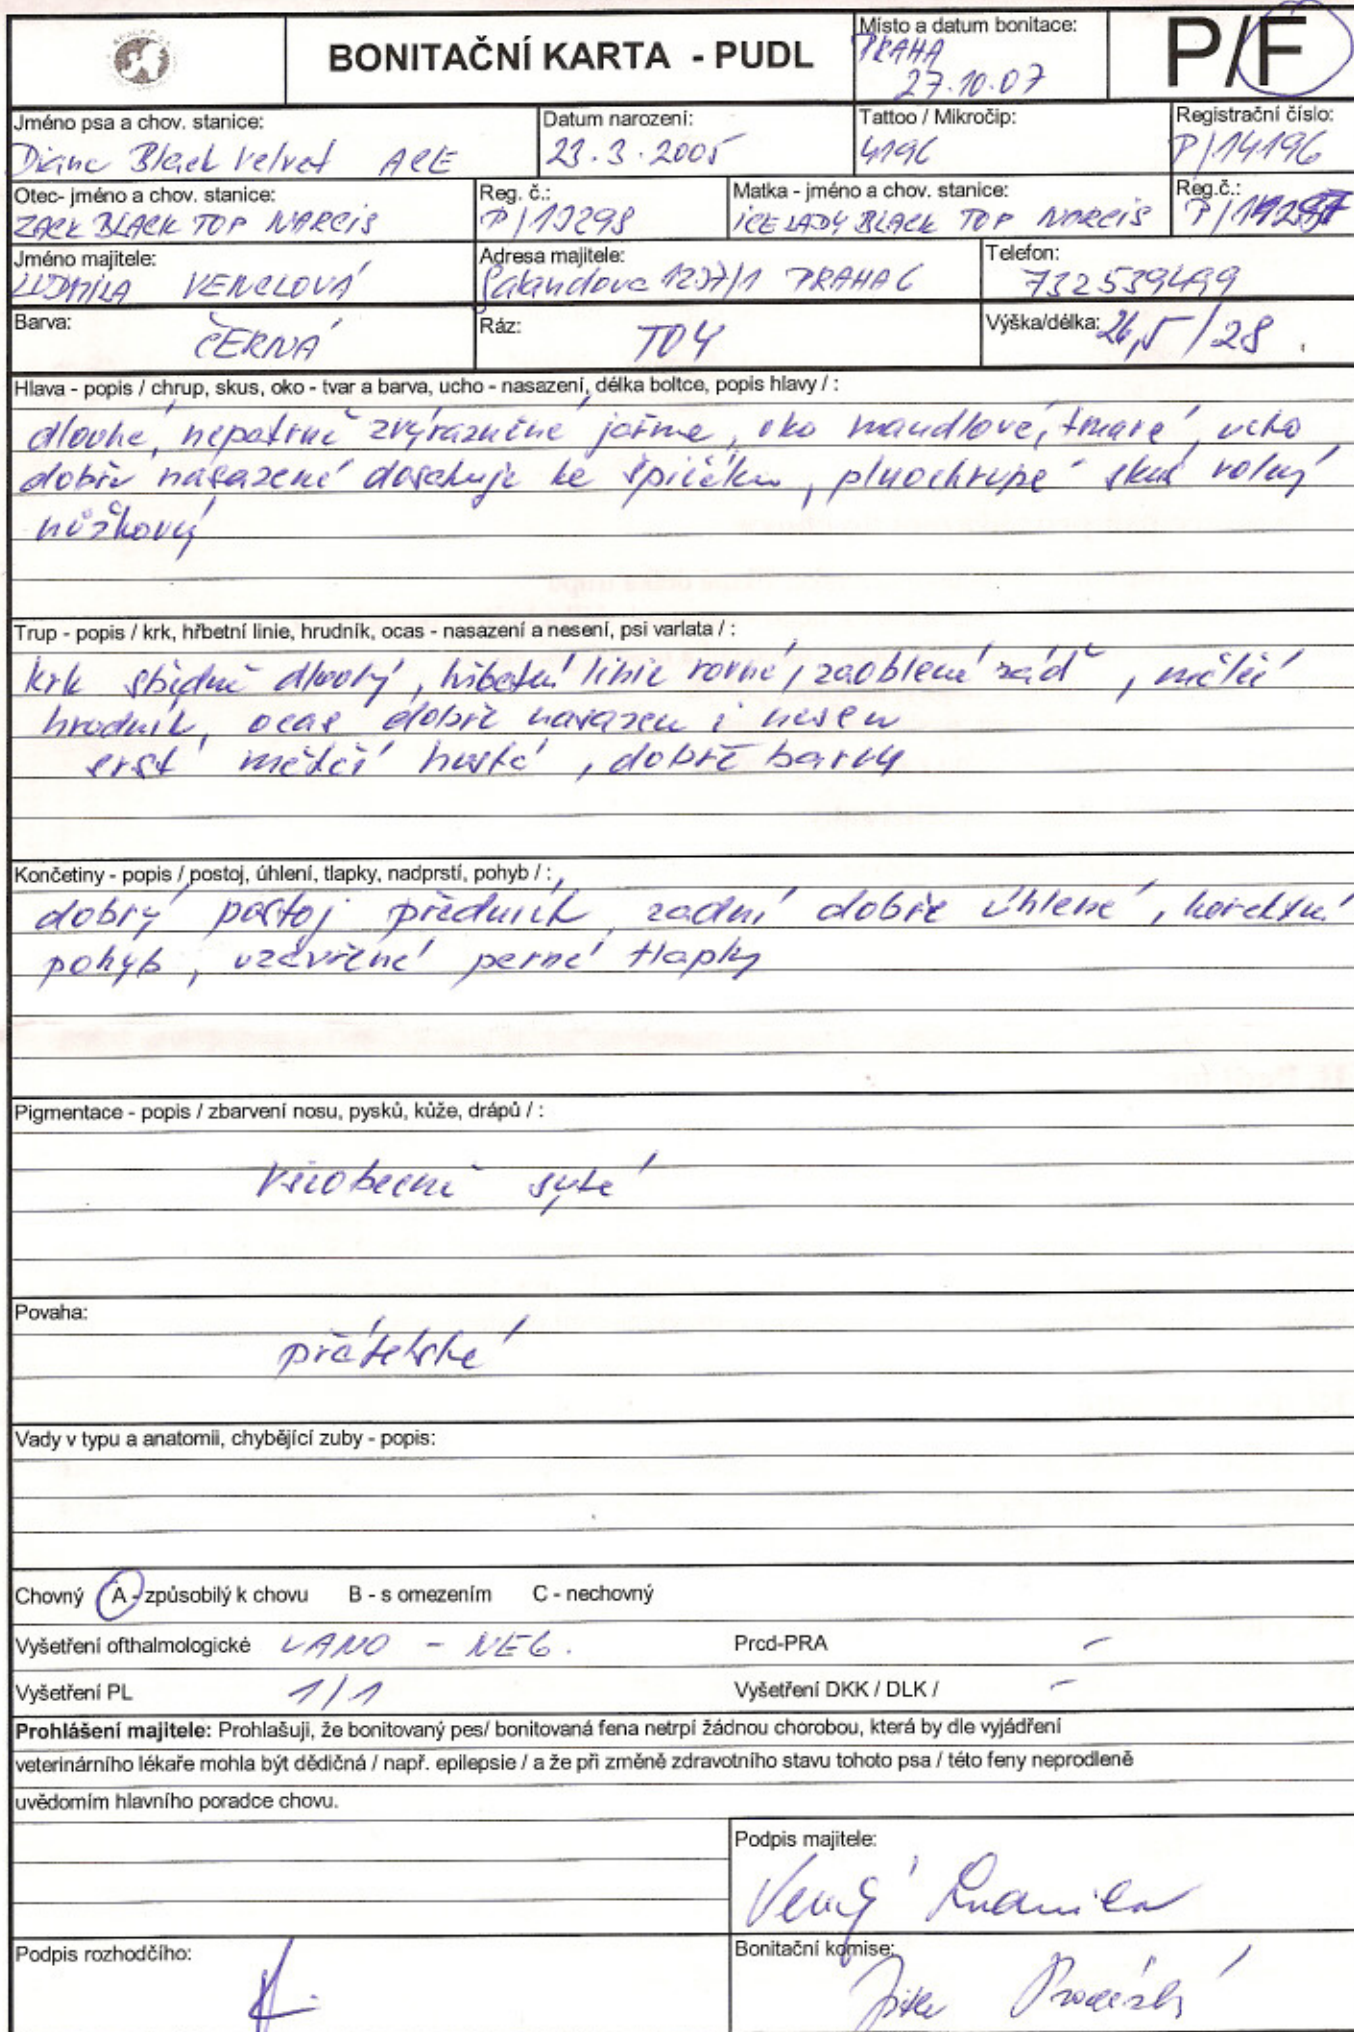 BONITAČNÍ KARTA - PUDL
Místo a datum bonitace:
PRAHA
27.10.07
P/F
Jméno psa a chov. stanice:
Diane Black Velvet ACE
Datum narození:
23.3.2005
Tattoo / Mikročip:
4196
Registrační číslo:
P/14196
Otec- jméno a chov. stanice:
ZACK BLACK TOP NARCIS
Reg. č.:
P/13298
Matka - jméno a chov. stanice:
ICE LADY BLACK TOP NARCIS
Reg.č.:
Jméno majitele:
LUDMILA VENCLOVÁ
Adresa majitele:
1237/1 PRAHA 6
Telefon:
732539499
Barva:
ČERNÁ
Ráz:
TOY
Výška/délka:
26,5/28
Hlava - popis / chrup, skus, oko - tvar a barva, ucho - nasazení, délka boltce, popis hlavy / :
dlouhé, nepatrně zvýrazněné jařmo, oko mandlové, tmavé, ucho
dobře nasazené dosahuje ke špičáku, plnochrupé skus volný
nůžkový
Trup - popis / krk, hřbetní linie, hrudník, ocas - nasazení a nesení, psi varlata / :
krk středně dlouhý, hřbetní linie rovná, zaoblená záď, mělčí
hrudník, ocas dobře nasazen i nesen
srst měkčí hustá, dobré barvy
Končetiny - popis / postoj, úhlení, tlapky, nadprstí, pohyb / :
dobrý postoj předních, zadní dobře úhlené, korektní
pohyb, uzavřené pevné tlapky
Pigmentace - popis / zbarvení nosu, pysků, kůže, drápů / :
všeobecně sytá
Povaha:
přátelská
Vady v typu a anatomii, chybějící zuby - popis:
Chovný A - způsobilý k chovu B - s omezením C - nechovný
Vyšetření ofthalmologické ANO - NEG.
Prcd-PRA -
Vyšetření PL 1/1
Vyšetření DKK / DLK / -
Prohlášení majitele: Prohlašuji, že bonitovaný pes/ bonitovaná fena netrpí žádnou chorobou, která by dle vyjádření
veterinárního lékaře mohla být dědičná / např. epilepsie / a že při změně zdravotního stavu tohoto psa / této feny neprodleně
uvědomím hlavního poradce chovu.
Podpis majitele:
Ludmila
Podpis rozhodčího:
Bonitační komise: